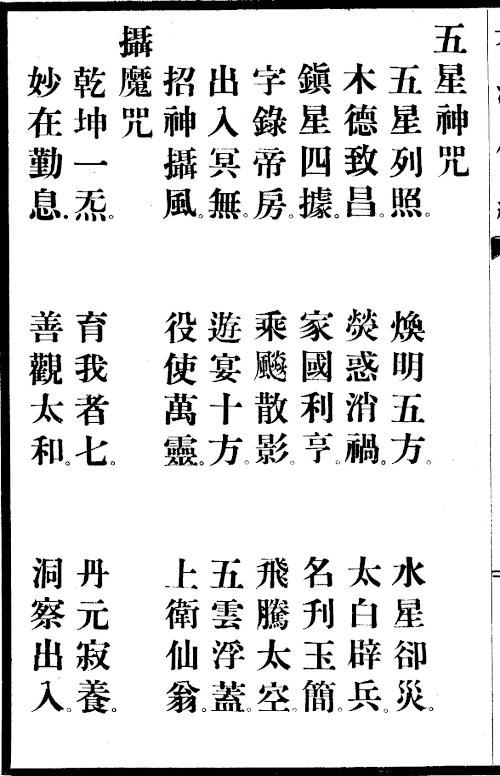 五星神咒
五星列照。煥明五方。水星卻災。
木德致昌。熒惑消禍。太白辟兵。
鎮星四據。家國利亨。名刋玉簡。
字錄帝房。乘飈散影。飛騰太空。
出入冥無。遊宴十方。五雲浮蓋。
招神攝風。役使萬靈。上衛仙翁。
攝魔咒
乾坤一炁。育我者七。丹元寂養。
妙在勤息。善觀太和。洞察出入。